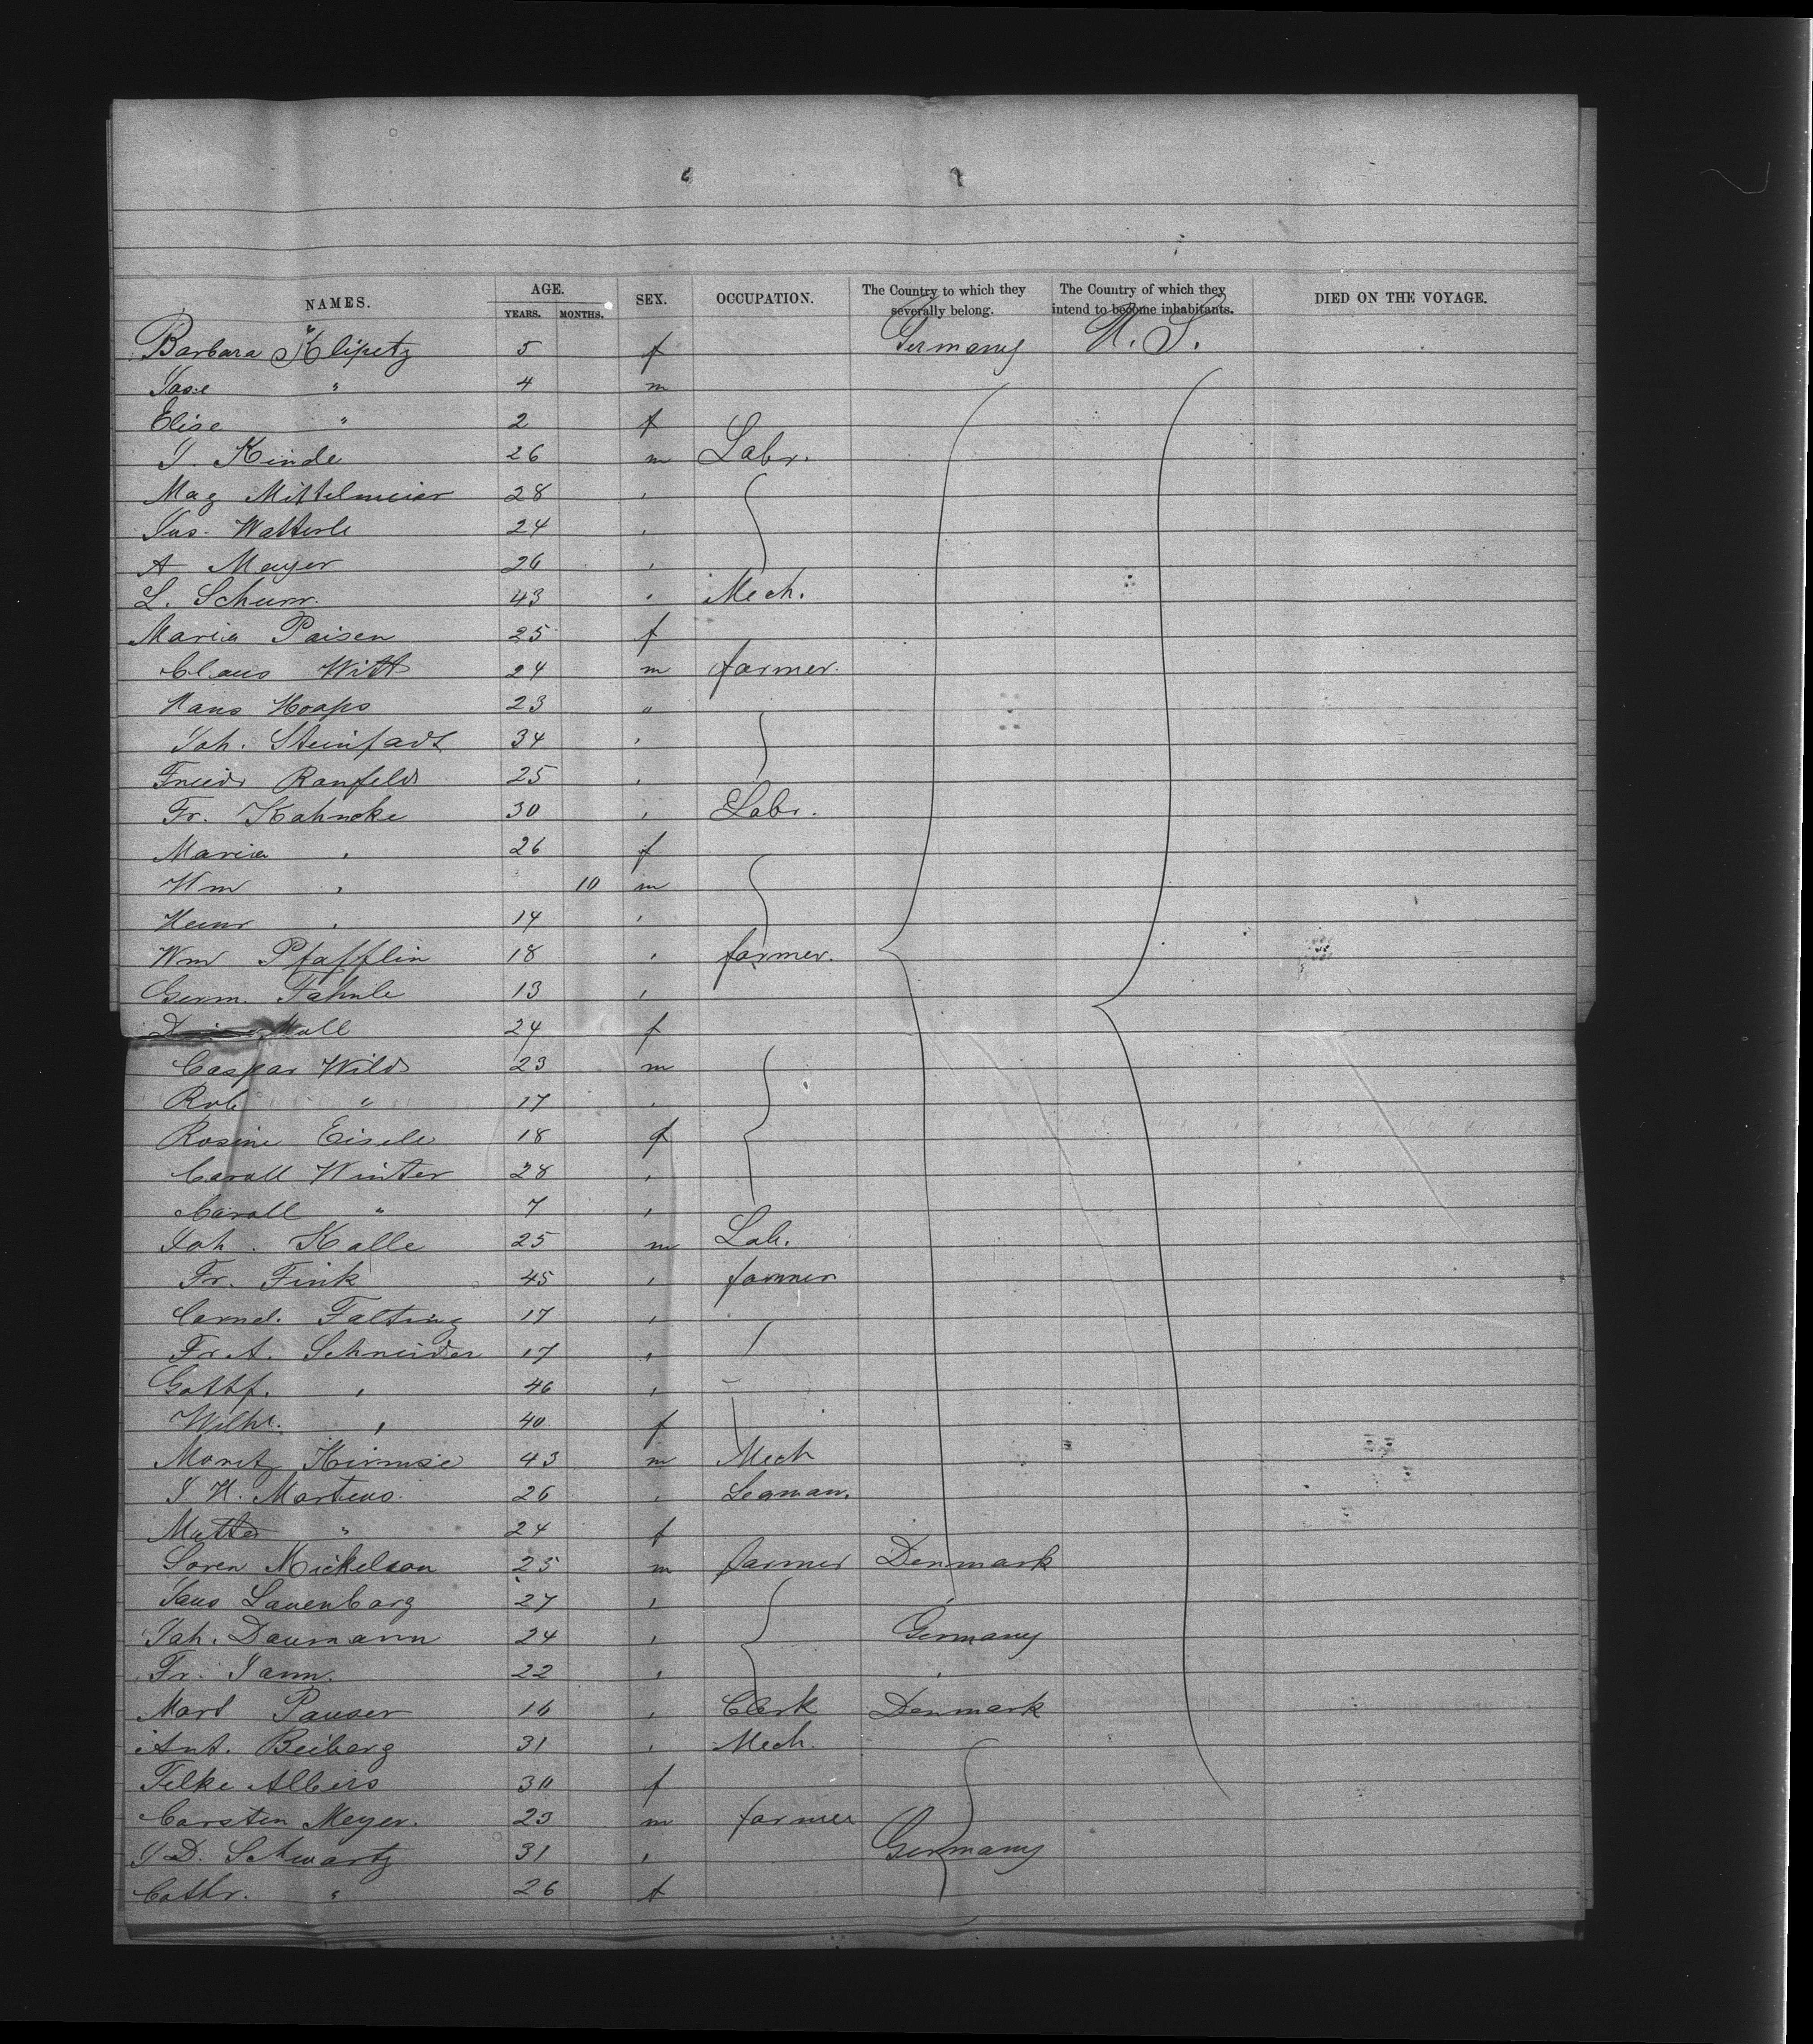 NAMES. AGE. YEARS. MONTHS. SEX. OCCUPATION. The Country to which they severally belong. The Country of which they intend to become inhabitants. DIED ON THE VOYAGE.
Barbara Klipetz 5 f Germany U. S.
4 m
Elise " 2 f
J. Kinde 26 m Labr.
Mag Mittelmeier 28 "
Jas. Watterle 24 "
A Mayer 26 "
L. Schurr. 43 " Mech.
Maria Paisen 25 f
Claus Witt 24 m farmer.
Hans Hoaps 23 "
Joh. 34 "
Friedr Ranfeldt 25 "
Fr. Kahncke 30 " Labr.
Maria " 26 f
Wm " 10 m
Heinr " 14 "
Wm Pfafflin 18 " farmer.
Germ. Fahnle 13 "
24 f
Caspar Wild 23 m
Rob " 17 "
Rosine Eisele 18 f
Caroll Winter 28 "
Caroll " 7 "
Joh. Kalle 25 m Lab.
Fr. Fink 45 " farmer
Cornel. Falting 17 "
Fr. A. Schneider 17 "
Gottf. " 46 "
Wilh. " 40 f
Moritz Kirmse 43 m Mech
J H. Martens 26 " Seaman.
24 f
Soren Mickelson 25 m farmer Denmark
Lauenbarg 27 "
Joh. Daumann 24 " Germany
Fr. Jann. 22 " "
Mart Pauser 16 " Clerk Denmark
Ant. Beiberg 31 " Mech.
Telke Albers 30 f
Carsten Meyer. 23 m farmer
J D. Schwartz 31 " Germany
Cathr. " 26 f